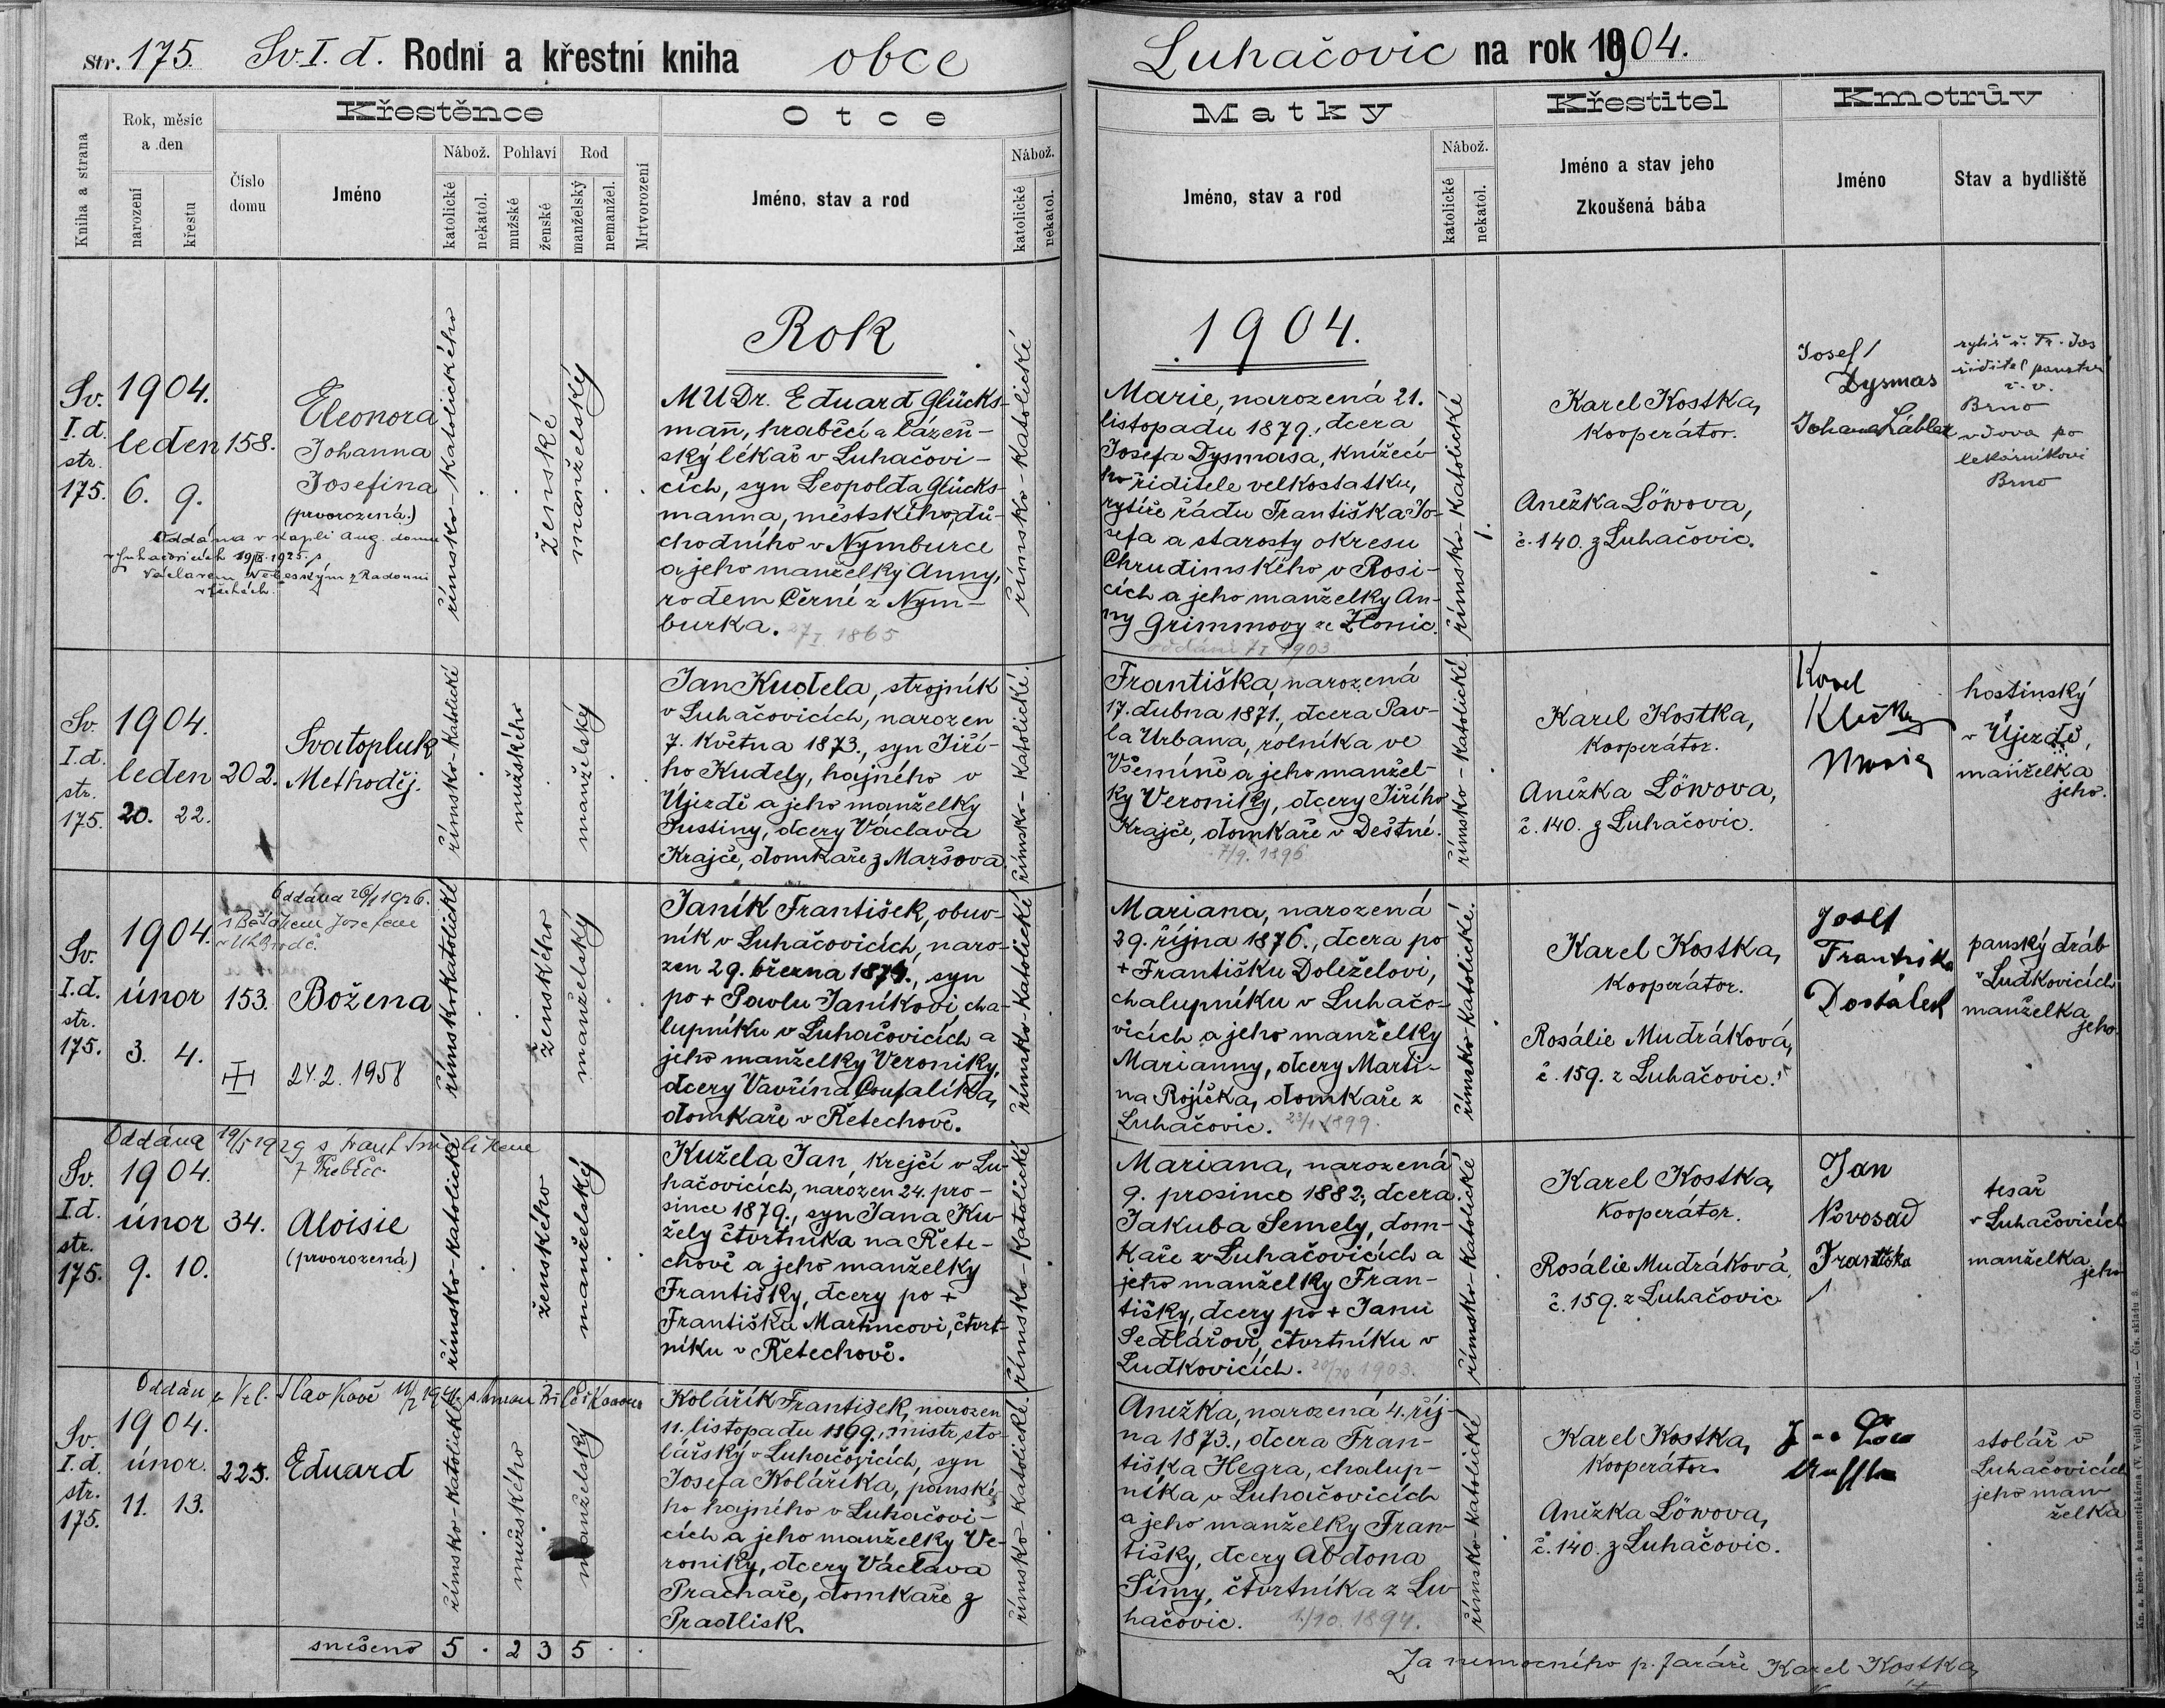 Str. 175. Sv. I. d. Rodní a křestní kniha obce
Luhačovic na rok 1904.
Kniha a strana
Rok, měsíc
a den
narození
křestu
Křestěnce
Číslo
domu
Jméno
Nábož.
katolické
nekatol.
Pohlaví
mužské
ženské
Rod
manželský
nemanžel.
Mrtvorození
Otce
Jméno, stav a rod
Nábož.
katolické
nekatol.
Matky
Jméno, stav a rod
Nábož.
katolické
nekatol.
Křestitel
Jméno a stav jeho
Zkoušená bába
Kmotrův
Jméno
Stav a bydliště
Rok
1904.
Sv.
I. d.
str.
175.
1904.
leden
6. 9.
158.
Eleonora
Johanna
Josefina
(prvorozená.)
Oddána v kapli Aug. domu
v Luhačovicích 19/IX. 1925. s
Václavem Nebeským z Radouni
v Čechách
římsko-katolického
ženské
manželský
MUDr. Eduard Glücks-
mann, hraběcí a lázeň-
ský lékař v Luhačovi-
cích, syn Leopolda Glücks-
manna, městského dů-
chodního v Nymburce
a jeho manželky Anny,
rodem Černé z Nym-
burka. 27/I 1865
římsko-katolické
Marie, narozená 21.
listopadu 1879., dcera
Josefa Dysmasa, knížecí-
ho ředitele velkostatku,
rytíře řádu Františka Jo-
sefa a starosty okresu
Chrudimského v Rosi-
cích a jeho manželky An-
ny Grimmovy ze Zlonic.
oddáni 7/I 1903
římsko-katolické
Karel Kostka,
kooperátor.
Anežka Löwova,
č. 140. z Luhačovic.
Josef
Dysmas
Johana Lábler
rytíř ř. Fr. Jos
ředitel panství
v. v.
Brno
vdova po
lekárníkovi
Brno
Sv.
I. d.
str.
175.
1904.
leden
20. 22.
202.
Svatopluk
Methoděj.
římsko-katolické
mužského
manželský
Jan Kudela, strojník
v Luhačovicích, narozen
7. května 1873., syn Jiří-
ho Kudely, hajného v
Újezdě a jeho manželky
Justiny, dcery Václava
Krajče, domkaře z Maršova.
římsko-katolické.
Františka, narozená
17. dubna 1871., dcera Pav-
la Urbana, rolníka ve
Všemíně a jeho manžel-
ky Veroniky, dcery Jiřího
Krajče, domkaře v Deštné.
7/9. 1896
římsko-katolické.
Karel Kostka,
kooperátor.
Anežka Löwova,
č. 140. z Luhačovic.
Karel
Klečky
Marie
hostinský
v Újezdě,
manželka
jeho.
Sv.
I. d.
str.
175.
1904.
únor
3. 4.
Oddána 26/1 1926.
s Josefem
v Uh. Brodě.
153.
Božena
24. 2. 1958
římsko-katolické
ženského
manželský
Janík František, obuv-
ník v Luhačovicích, naro-
zen 29. března 1874., syn
po + Pavlu Janíkovi cha-
lupníku v Luhačovicích a
jeho manželky Veroniky,
dcery Vavřína Coufalíka,
domkaře v Řetechově.
římsko-katolické
Mariana, narozená
29. října 1876., dcera po
+ Františku Doleželovi,
chalupníku v Luhačo-
vicích a jeho manželky
Marianny, dcery Marti-
na Rojíčka, domkaře z
Luhačovic. 23/1 1899.
římsko-katolické.
Karel Kostka,
kooperátor.
Rosálie Mudráková,
č. 159. z Luhačovic.
Josef
Františka
Dostálek
panský dráb
v Ludkovicích
manželka
jeho
Oddána 19/5 1929 s Frant.
z Třebíče
Sv.
I. d.
str.
175.
1904.
únor
9. 10.
34.
Aloisie
(prvorozená)
římsko-katolické
ženského
manželský
Kužela Jan, krejčí v Lu-
hačovicích, narozen 24. pro-
since 1879., syn Jana Ku-
žely čtvrtníka na Řete-
chově a jeho manželky
Františky, dcery po +
Františku Martincovi, čtvrt-
níku v Řetechově.
římsko-katolické
Mariana, narozená
9. prosince 1882., dcera
Jakuba Semely, dom-
kaře v Luhačovicích a
jeho manželky Fran-
tišky, dcery po + Janu
Sedlářovi, čtvrtníku v
Ludkovicích. 20/10 1903.
římsko-katolické
Karel Kostka,
kooperátor.
Rosálie Mudráková,
č. 159. z Luhačovic
Jan
Novosad
Františka
tesař
v Luhačovicích
manželka
jeho
Oddán
Sv.
I. d.
str.
175.
1904.
únor.
11. 13.
225.
Eduard
římsko-katolické.
mužského
manželský
Kolářík František, narozen
11. listopadu 1869., mistr sto-
lářský v Luhačovicích, syn
Josefa Kolářika, panské-
ho hajného v Luhačovi-
cích a jeho manželky Ve-
roniky, dcery Václava
Prachaře, domkaře z
Pradlisk
římsko-katolické.
Anežka, narozená 4. říj-
na 1873., dcera Fran-
tiška Hegra, chalup-
níka v Luhačovicích
a jeho manželky Fran-
tišky, dcery Abdona
Símy, čtvrtníka z Lu-
hačovic. 1894.
římsko-katolické
Karel Kostka,
kooperátor
Anežka Löwova,
č. 140. z Luhačovic.
stolář v
Luhačovicích
jeho man
želka
snešeno 5 . 2 3 5 . .
Za nemocného p. faráře Karel Kostka,